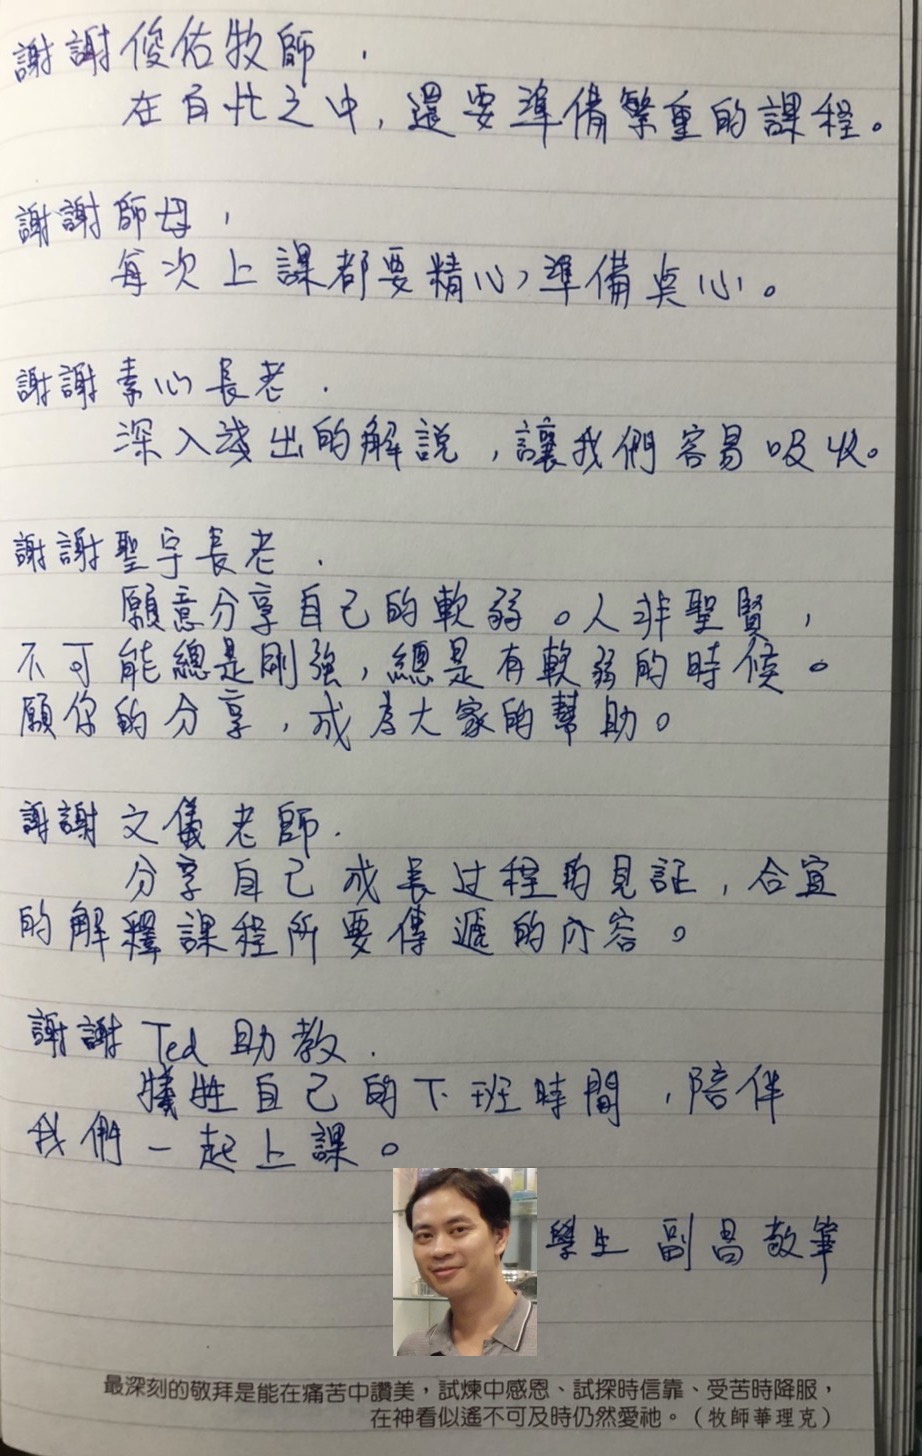 謝謝俊佑牧師，
在百忙之中，還要準備繁重的課程。
謝謝師母，
每次上課都要精心準備點心。
謝謝素心長老，
深入淺出的解說，讓我們容易吸收。
謝謝聖宇長老，
願意分享自己的軟弱。人非聖賢，
不可能總是剛強，總是有軟弱的時候。
願你的分享，成為大家的幫助。
謝謝文儀老師，
分享自己成長过程的見証，合宜
的解釋課程所要傳遞的內容。
謝謝Ted助教，
犧牲自己的下班時間，陪伴
我們一起上課。
學生 副昌敬筆
最深刻的敬拜是能在痛苦中讚美，試煉中感恩、試探時信靠、受苦時降服，
在神看似遙不可及時仍然愛祂。（牧師華理克）